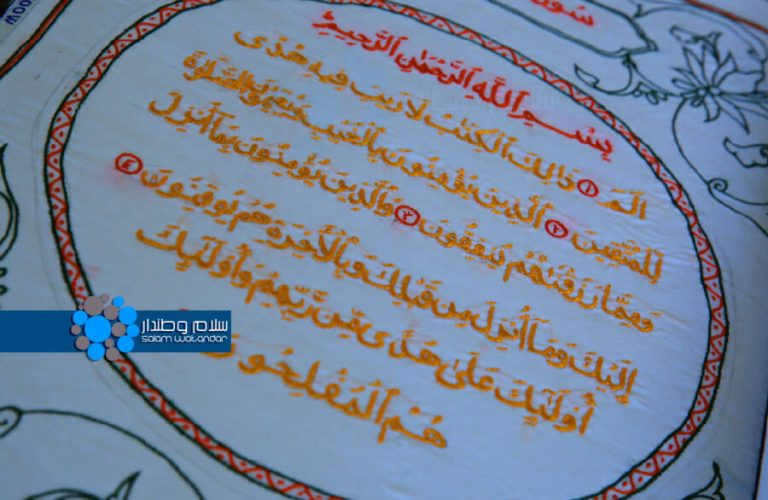 سورة
بِسْمِ ٱللَّهِ ٱلرَّحْمَٰنِ ٱلرَّحِيمِ
الٓمٓ ١ ذَٰلِكَ ٱلْكِتَٰبُ لَا رَيْبَ فِيهِ هُدًى
لِّلْمُتَّقِينَ ٢ ٱلَّذِينَ يُؤْمِنُونَ بِٱلْغَيْبِ ٱلصَّلَاةَ
وَمِمَّا رَزَقْنَاهُمْ يُنفِقُونَ ٣ وَٱلَّذِينَ يُؤْمِنُونَ بِمَا أُنْزِلَ
إِلَيْكَ وَمَا أُنْزِلَ مِن قَبْلِكَ وَبِٱلْأَخِرَةِ هُمْ يُوقِنُونَ ٤
أُولَٰئِكَ عَلَىٰ هُدًى مِّن رَّبِّهِمْ وَأُولَٰئِكَ
هُمُ ٱلْمُفْلِحُونَ
سلام وطندار
SALAM WATANDAR